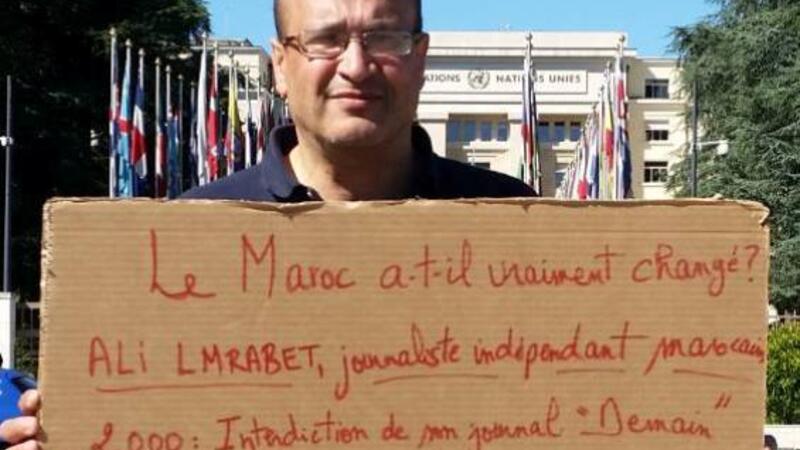 NATIONS
NATIONS UNIES
Le Maroc a-t-il vraiment changé?
ALi LMRABET, journaliste indépendant marocain
2000: Interdiction de mon journal "Demain"